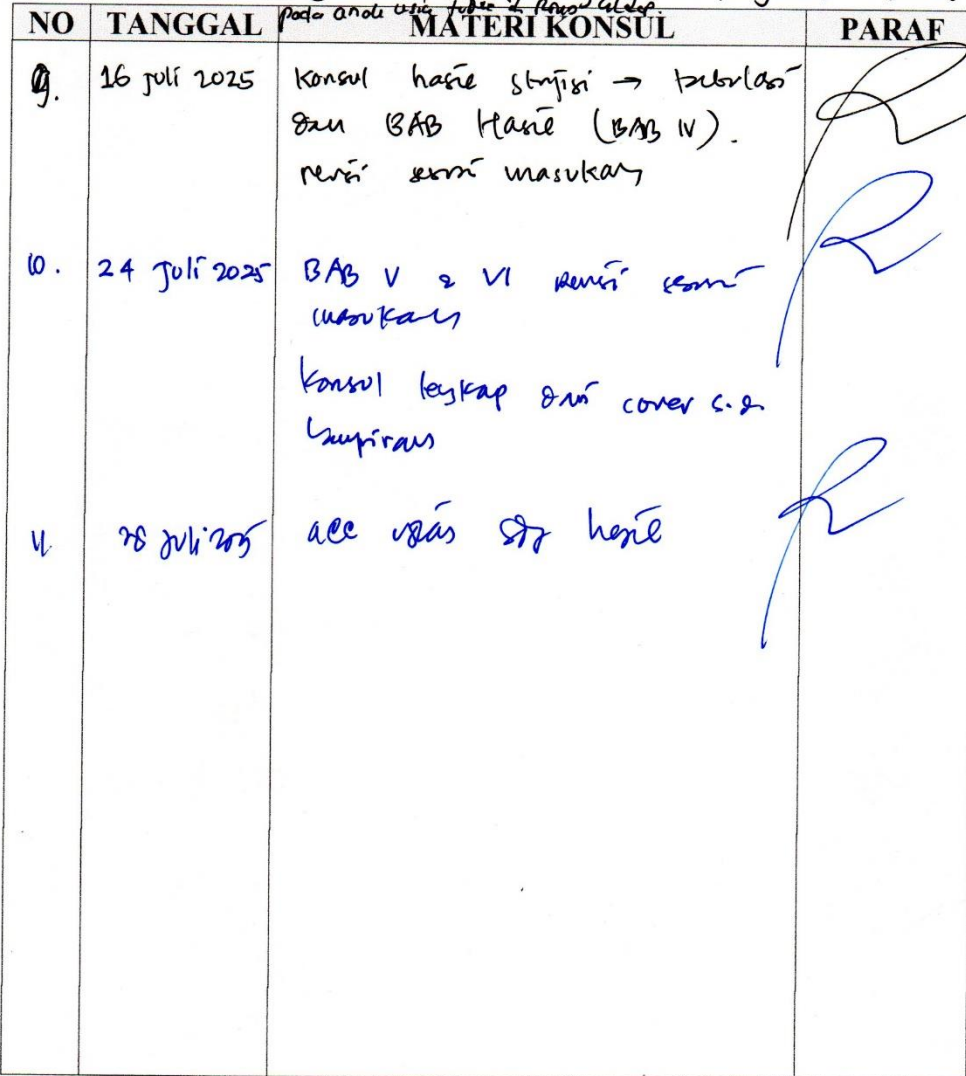 pada anak usia
NO TANGGAL MATERI KONSUL PARAF
9. 16 Juli 2025 Konsul hasil → tabulasi
dan BAB Hasil (BAB IV).
revisi sesuai masukan
10. 24 Juli 2025 BAB V & VI revisi sesuai
masukan
Konsul lengkap dari cover s.d.
Lampiran
11. 28 Juli 2025 acc hasil